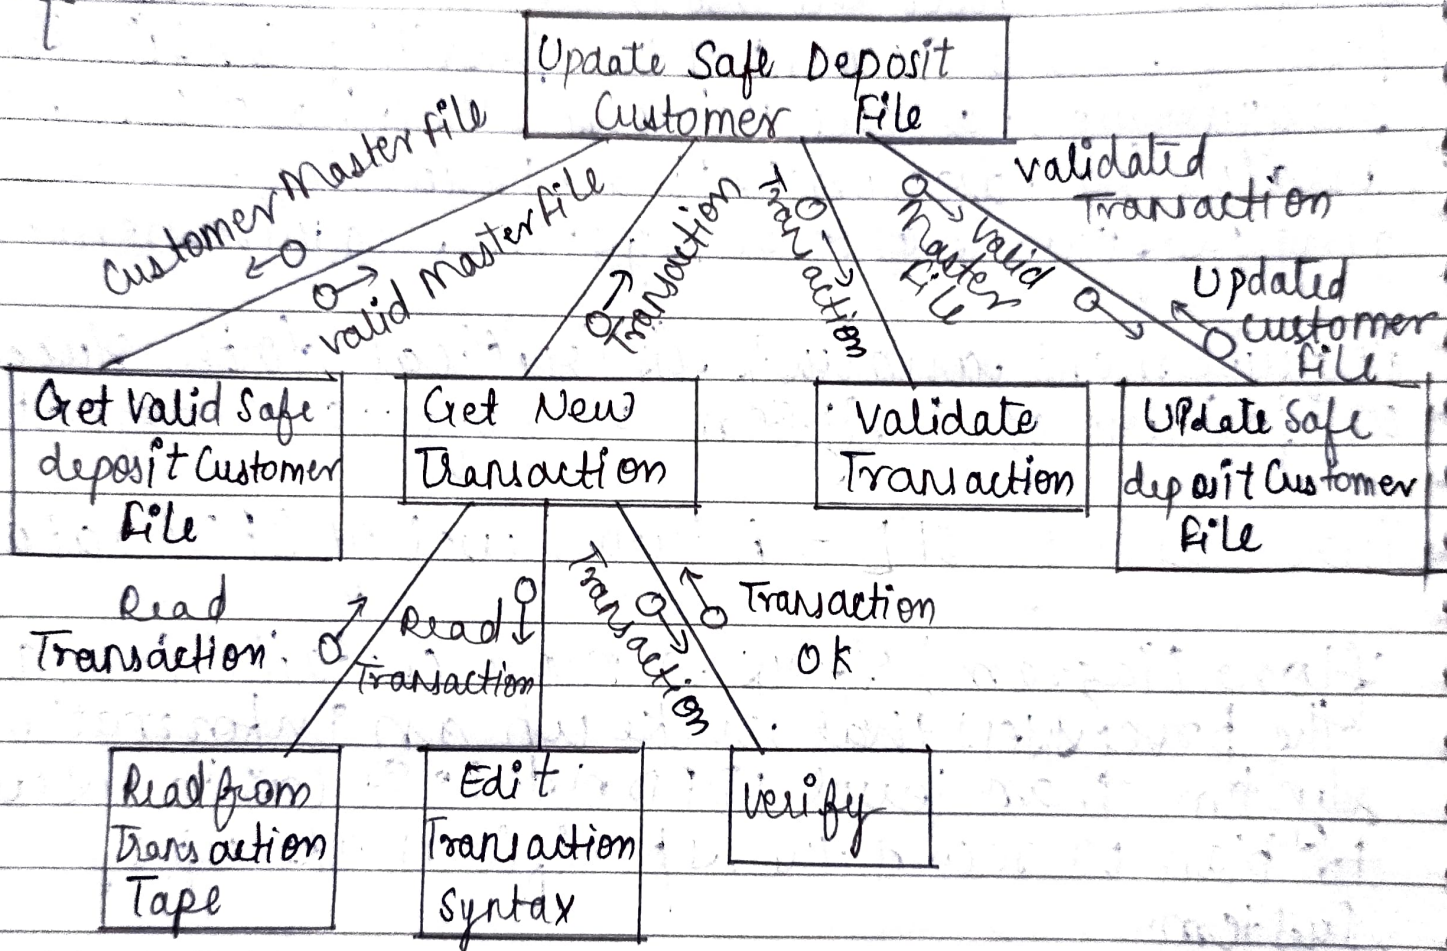 Update Safe Deposit
Customer File
Customer Master file
valid Master file
Transaction
Transaction
validated
Transaction
valid
Master
file
Updated
customer
file
Get Valid Safe
deposit Customer
file
Get New
Transaction
Validate
Transaction
Update Safe
deposit Customer
file
Read
Transaction
Read
Transaction
Transaction
Transaction
OK
Read from
Transaction
Tape
Edit
Transaction
Syntax
Verify